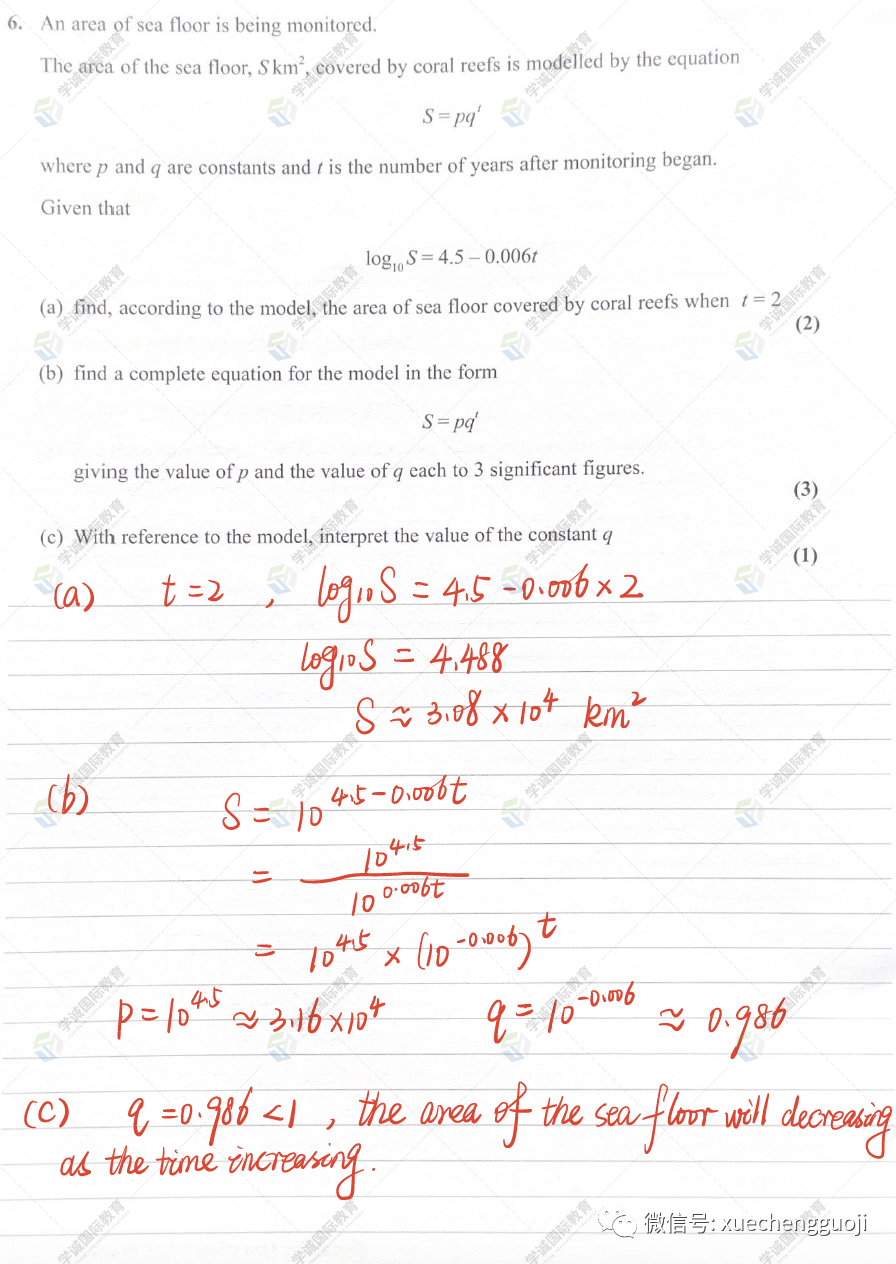 6. An area of sea floor is being monitored.
The area of the sea floor, S km², covered by coral reefs is modelled by the equation
S = pqᵗ
where p and q are constants and t is the number of years after monitoring began.
Given that
log₁₀ S = 4.5 – 0.006t
(a) find, according to the model, the area of sea floor covered by coral reefs when t = 2
(2)
(b) find a complete equation for the model in the form
S = pqᵗ
giving the value of p and the value of q each to 3 significant figures.
(3)
(c) With reference to the model, interpret the value of the constant q
(1)
(a) t = 2 , log₁₀S = 4.5 - 0.006 × 2
log₁₀S = 4.488
S ≈ 3.08 × 10⁴ km²
(b) S = 10^(4.5-0.006t)
= 10^4.5 / 10^0.006t
= 10^4.5 × (10^-0.006)^t
p = 10^4.5 ≈ 3.16×10⁴ q = 10^-0.006 ≈ 0.986
(C) q = 0.986 < 1 , the area of the sea floor will decreasing
as the time increasing.
微信号: xuechengguoji
学诚国际教育